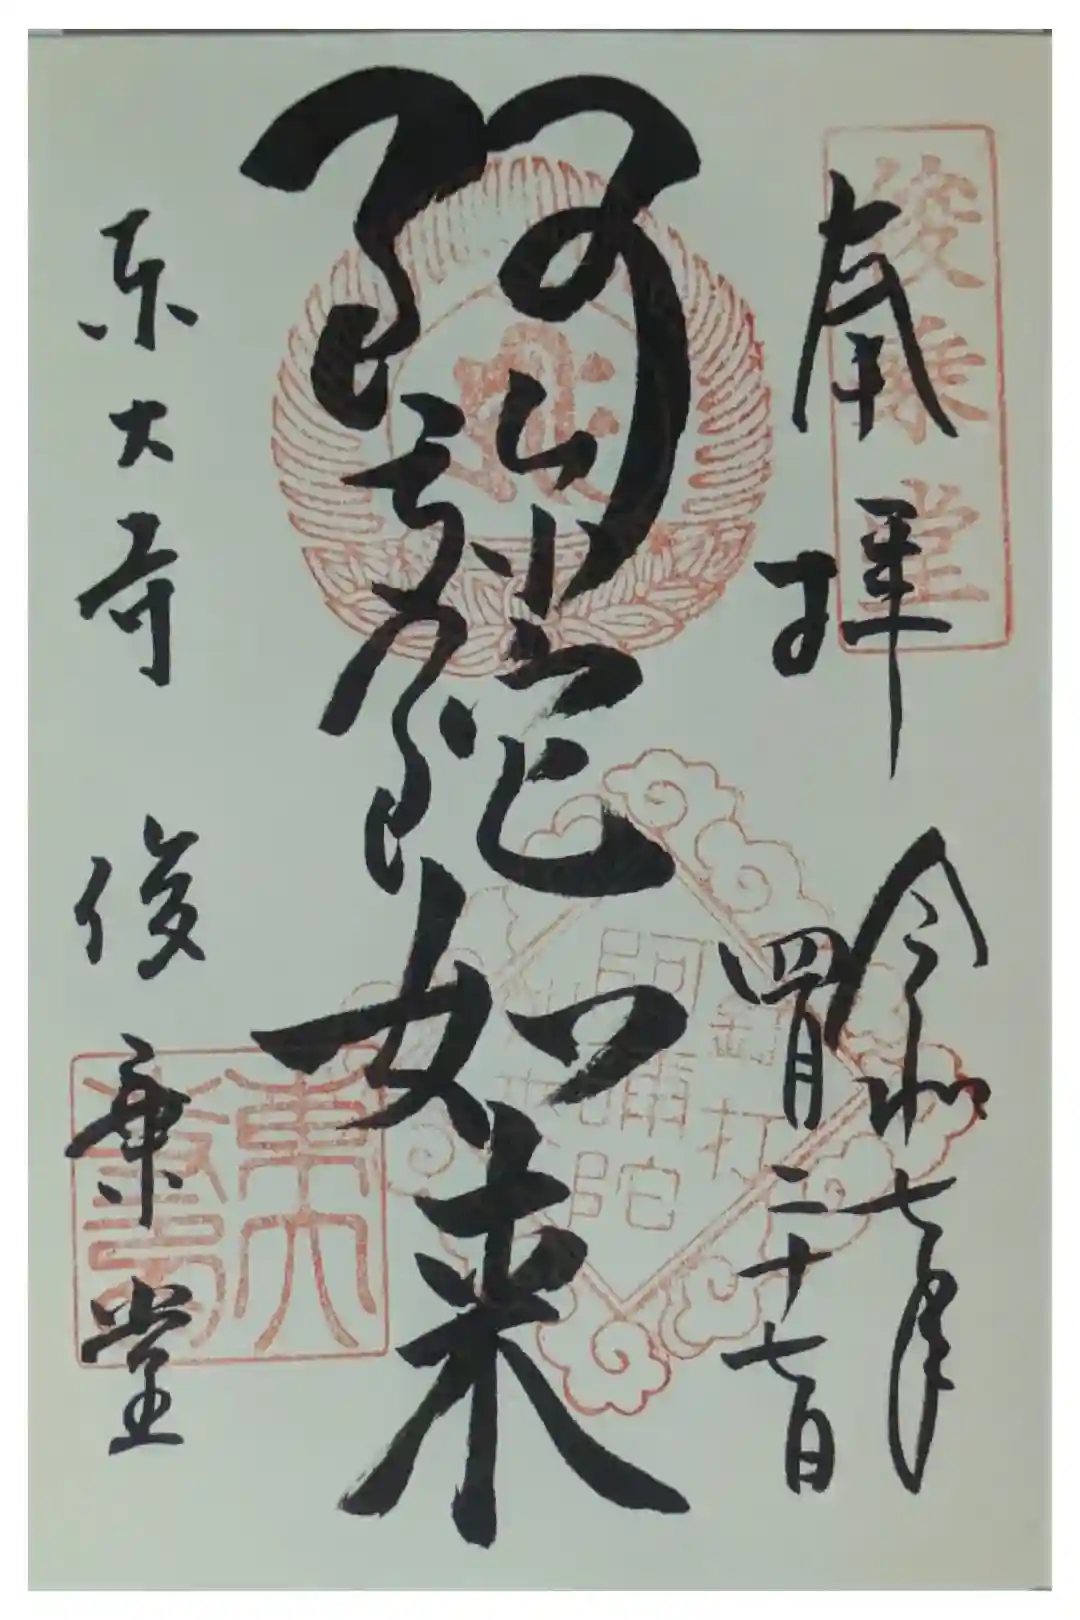 奉拝
令和七年
四月二十七日
阿弥陀如来
東大寺 俊乗堂
俊乗堂
釘打
阿弥陀